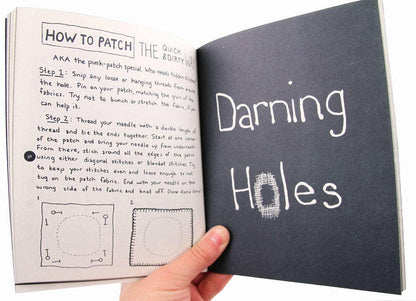 HOW TO PATCH THE QUICK & DIRTY WAY
AKA the punk-patch special. Who needs hidden stitches?
Step 1: Snip any loose or hanging threads from around
the hole. Pin on your patch, matching the grain of the
fabrics. Try not to bunch or stretch the fabric, if you
can help it.
Step 2: Thread your needle with a double length of
thread and tie the ends together. Start at one corner
of the patch and bring your needle up from underneath.
From there, stitch around all the edges of the patch
using either diagonal stitches or blanket stitches. Try
to keep your stitches even and loose enough to not
tug on the patch fabric. End with your needle on the
wrong side of the fabric and knot off. Done
1
2
Darning
Holes